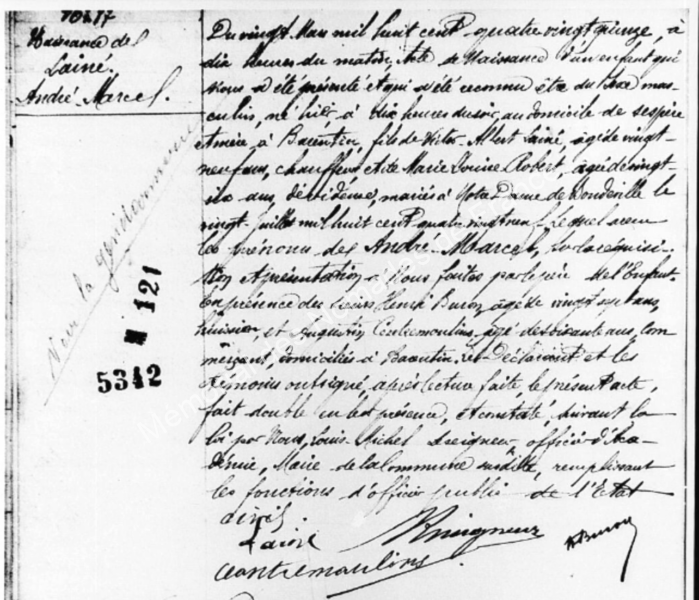 Naissance de
Lainé.
André Marcel.
Voir la gendarmerie
N 121
5342
Du vingt Mars mil huit cent quatre vingt quinze, à
dix heures du matin, Acte de Naissance d'un enfant qui
nous a été présenté et qui a été reconnu être du sexe mas-
culin, né hier à dix heures du soir, au domicile de ses père
et mère, à Barentin, fils de Victor Albert Lainé, âgé de vingt
neuf ans, chauffeur et de Marie Louise Robert, âgée de vingt
six ans, dévideuse, mariés à Notre Dame de Bondeville le
vingt juillet mil huit cent quatre vingt neuf. Lequel a reçu
les prénoms de André Marcel, sur la réquisi-
tion et présentation à Nous faites par le père de l'Enfant
En présence des Sieurs Henri Buron, âgé de vingt sept ans,
et Augustin Contremoulins, âgé de soixante ans, com-
merçant, domiciliés à Barentin. Les Déclarant et les
témoins ont signé, après lecture faite, le présent acte,
fait double en leur présence, et constaté, suivant la
loi par Nous, Louis Michel Seigneur, officier d'Aca-
démie, Maire de la Commune susdite, remplissant
les fonctions d'officier public de l'Etat
civil.
Lainé
Seigneur
H Buron
Contremoulins